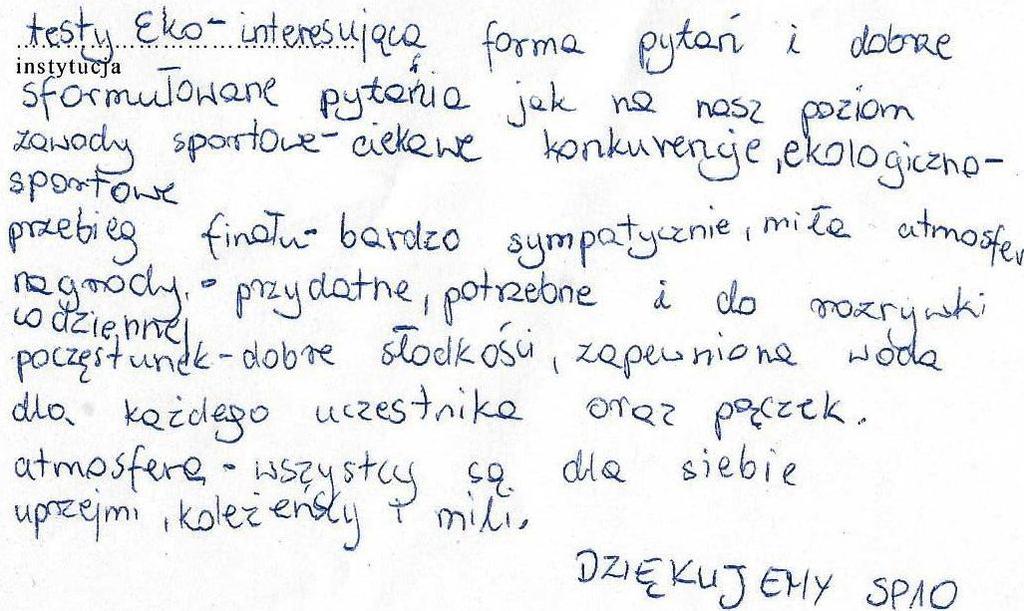 testy Eko- interesująca forma pytań i dobrze
instytucja
sformułowane pytania jak na nasz poziom
zawody sportowe- ciekawe konkurencje, ekologiczno-
sportowe
przebieg finału- bardzo sympatycznie, miła atmosfer
nagrody. - przydatne, potrzebne i do rozrywki
codziennej
poczęstunek- dobre słodkości, zapewniona woda
dla każdego uczestnika oraz pączek.
atmosfera - wszyscy są dla siebie
uprzejmi, koleżeńscy i mili.
DZIĘKUJEMY SP10